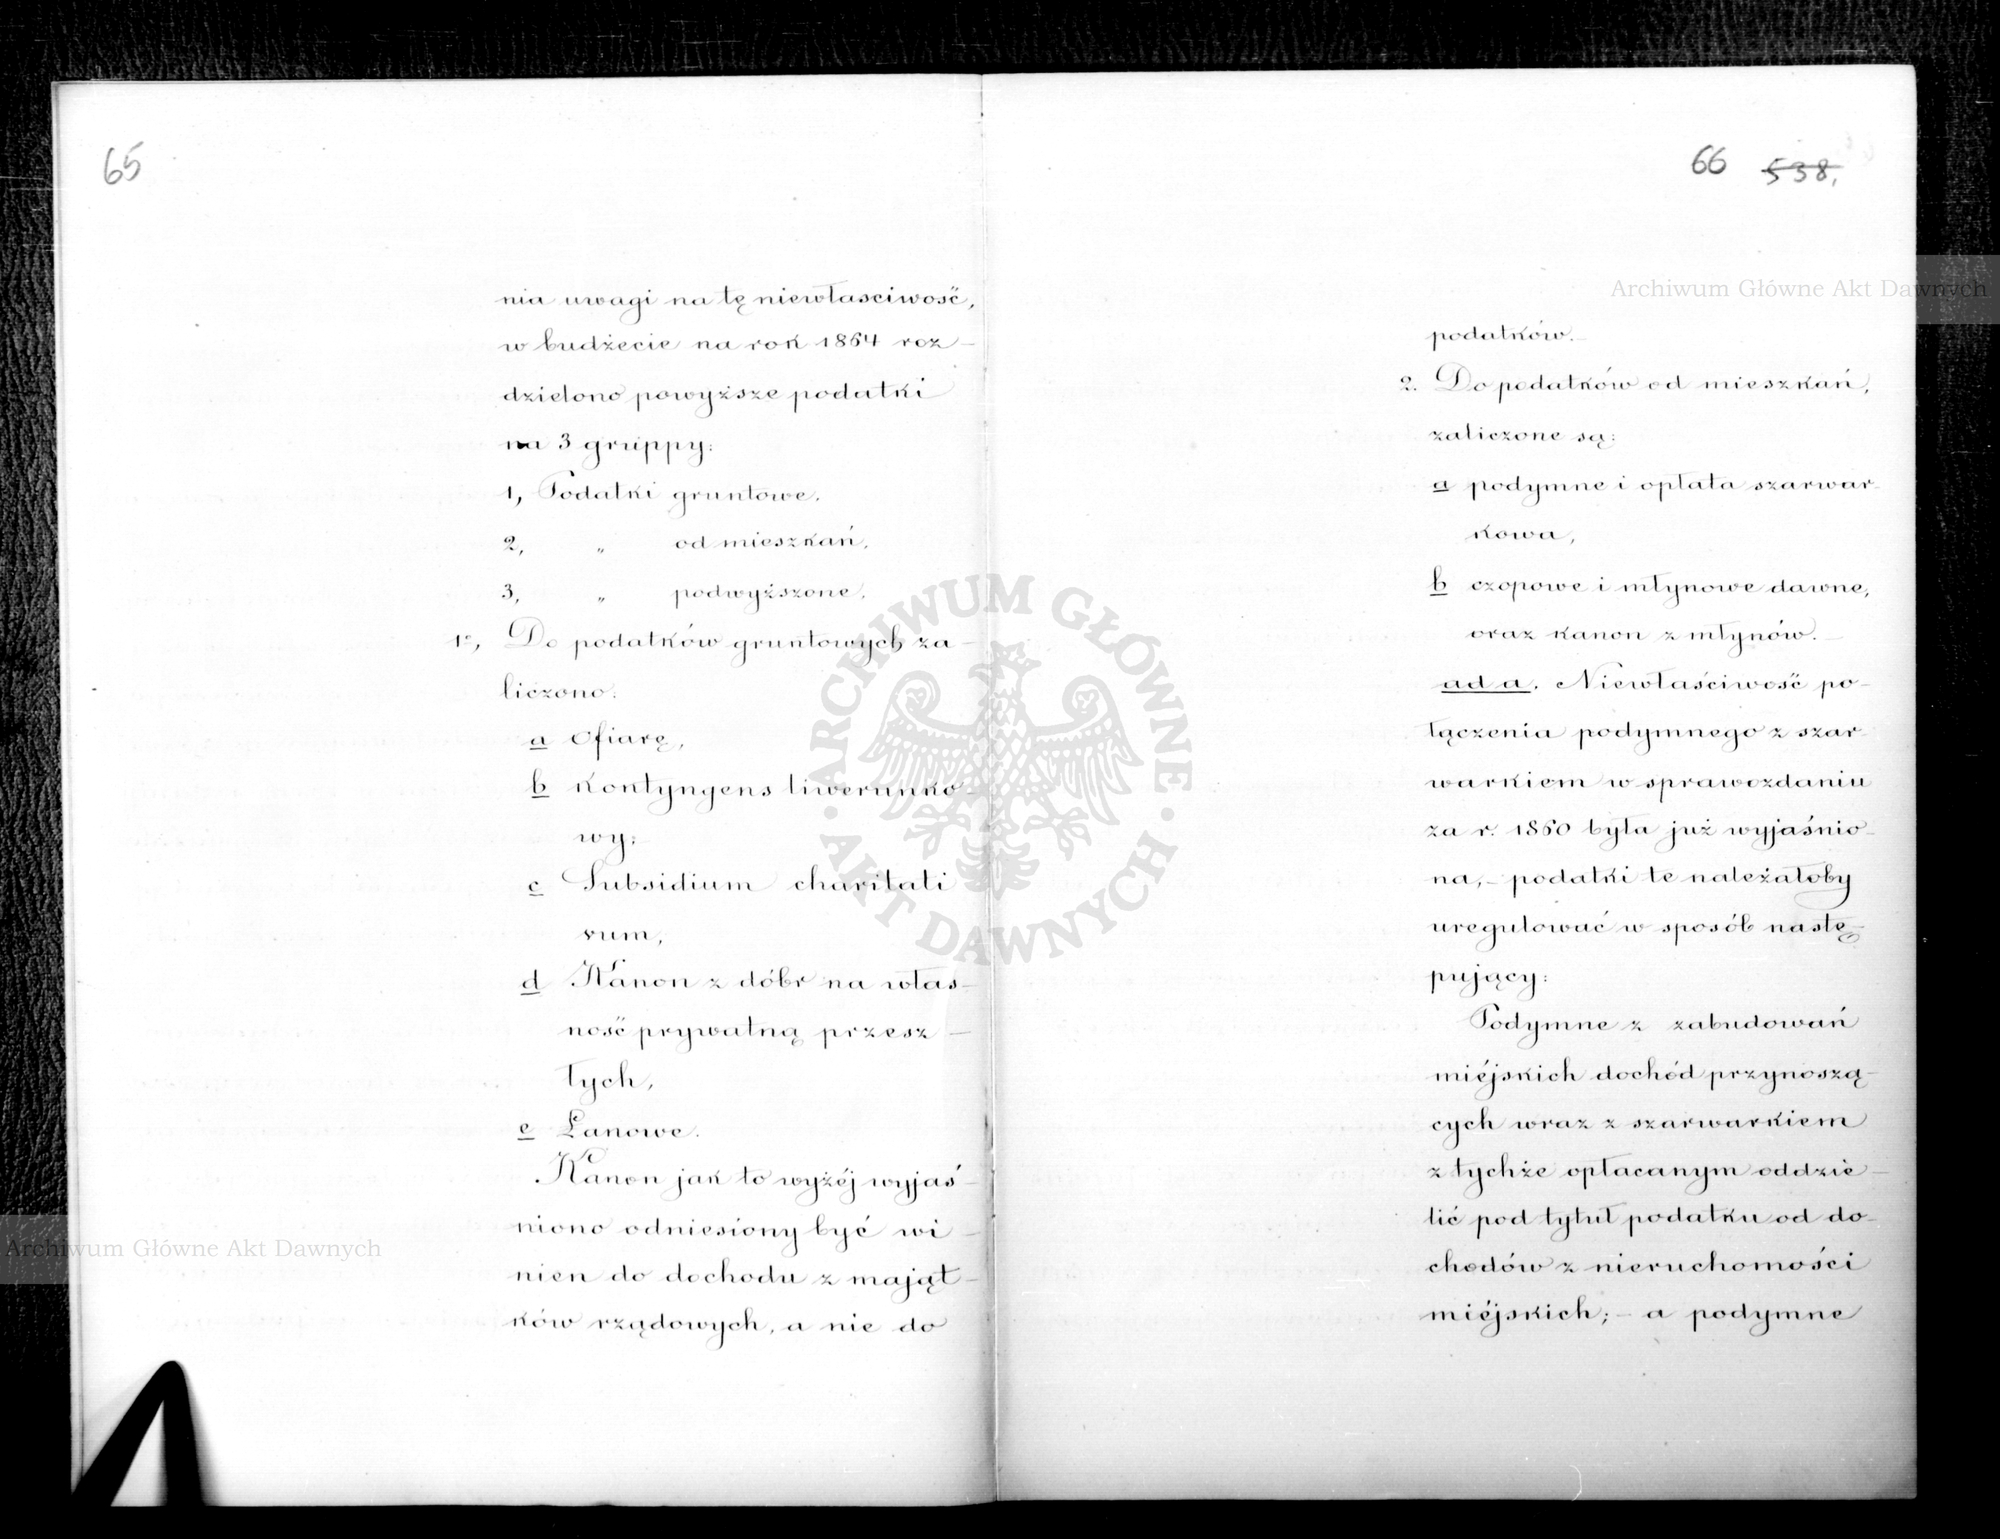 65
nia uwagi na tę niewłasciwość,
w budżecie na rok 1864 roz-
dzielono powyższe podatki
na 3 gruppy:
1, Podatki gruntowe.
2, „ od mieszkań,
3, „ podwyższone,
1o, Do podatków gruntowych za-
liczono:
a Ofiarę,
b Kontyngens liwerunko-
wy;-
c Subsidium charitati
vum,
d Kanon z dóbr na włas-
ność prywatną przesz-
łych,
e Łanowe.
Kanon jak to wyżéj wyjaś-
niono odniesiony być wi-
nien do dochodu z mająt-
ków rządowych, a nie do
66 538,
podatków.-
2. Do podatków od mieszkań,
zaliczone są:
a podymne i opłata szarwar-
kowa,
b czopowe i młynowe dawne,
oraz kanon z młynów.-
ad a. Niewłaściwość po-
łączenia podymnego z szar-
warkiem w sprawozdaniu
za r. 1860 była już wyjaśnio-
na,- podatki te należałoby
uregulować w sposób nastę-
pujący:
Podymne z zabudowań
miéjskich dochód przynoszą-
cych wraz z szarwarkiem
z tychże opłacanym oddzie-
lić pod tytuł podatku od do-
chodów z nieruchomości
miéjskich;- a podymne
Archiwum Główne Akt Dawnych
Archiwum Główne Akt Dawnych
ARCHIWUM GŁÓWNE
AKT DAWNYCH